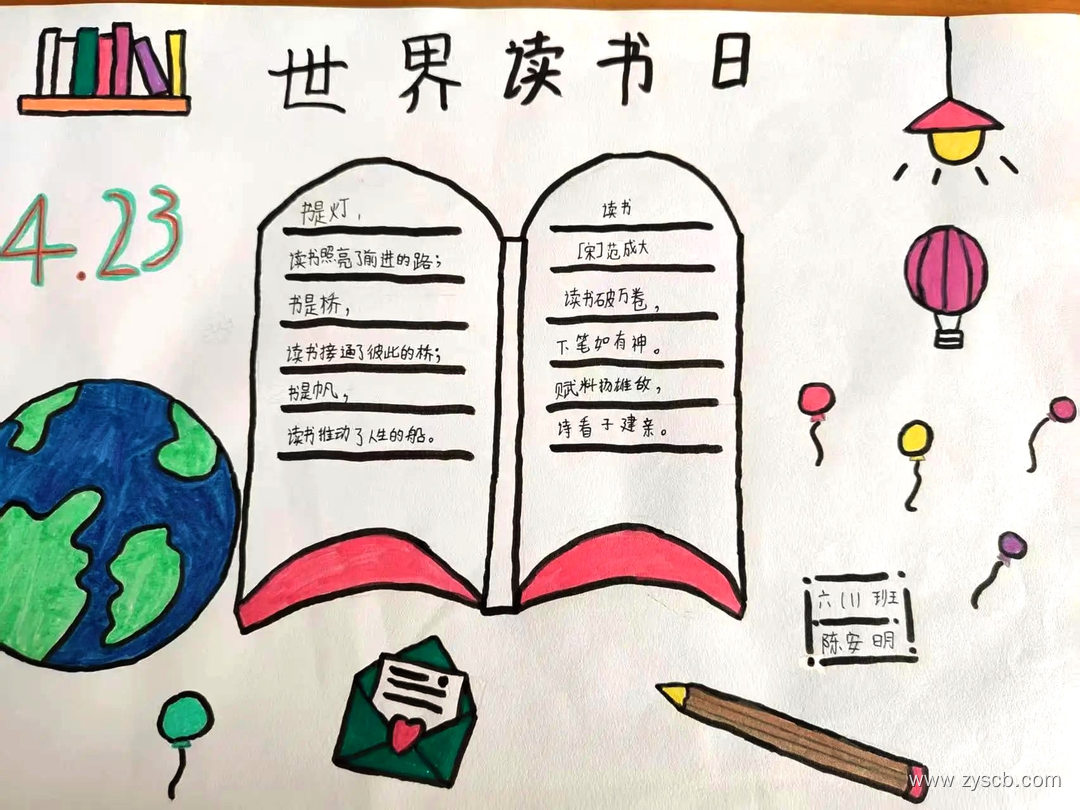 世界读书日
4.23
书是灯，
读书照亮了前进的路；
书是桥，
读书接通了彼此的桥；
书是帆，
读书推动了人生的船。
读书
[宋]范成大
读书破万卷，
下笔如有神。
赋料扬雄敌，
诗看子建亲。
六(1)班
陈安明
www.zyscb.com